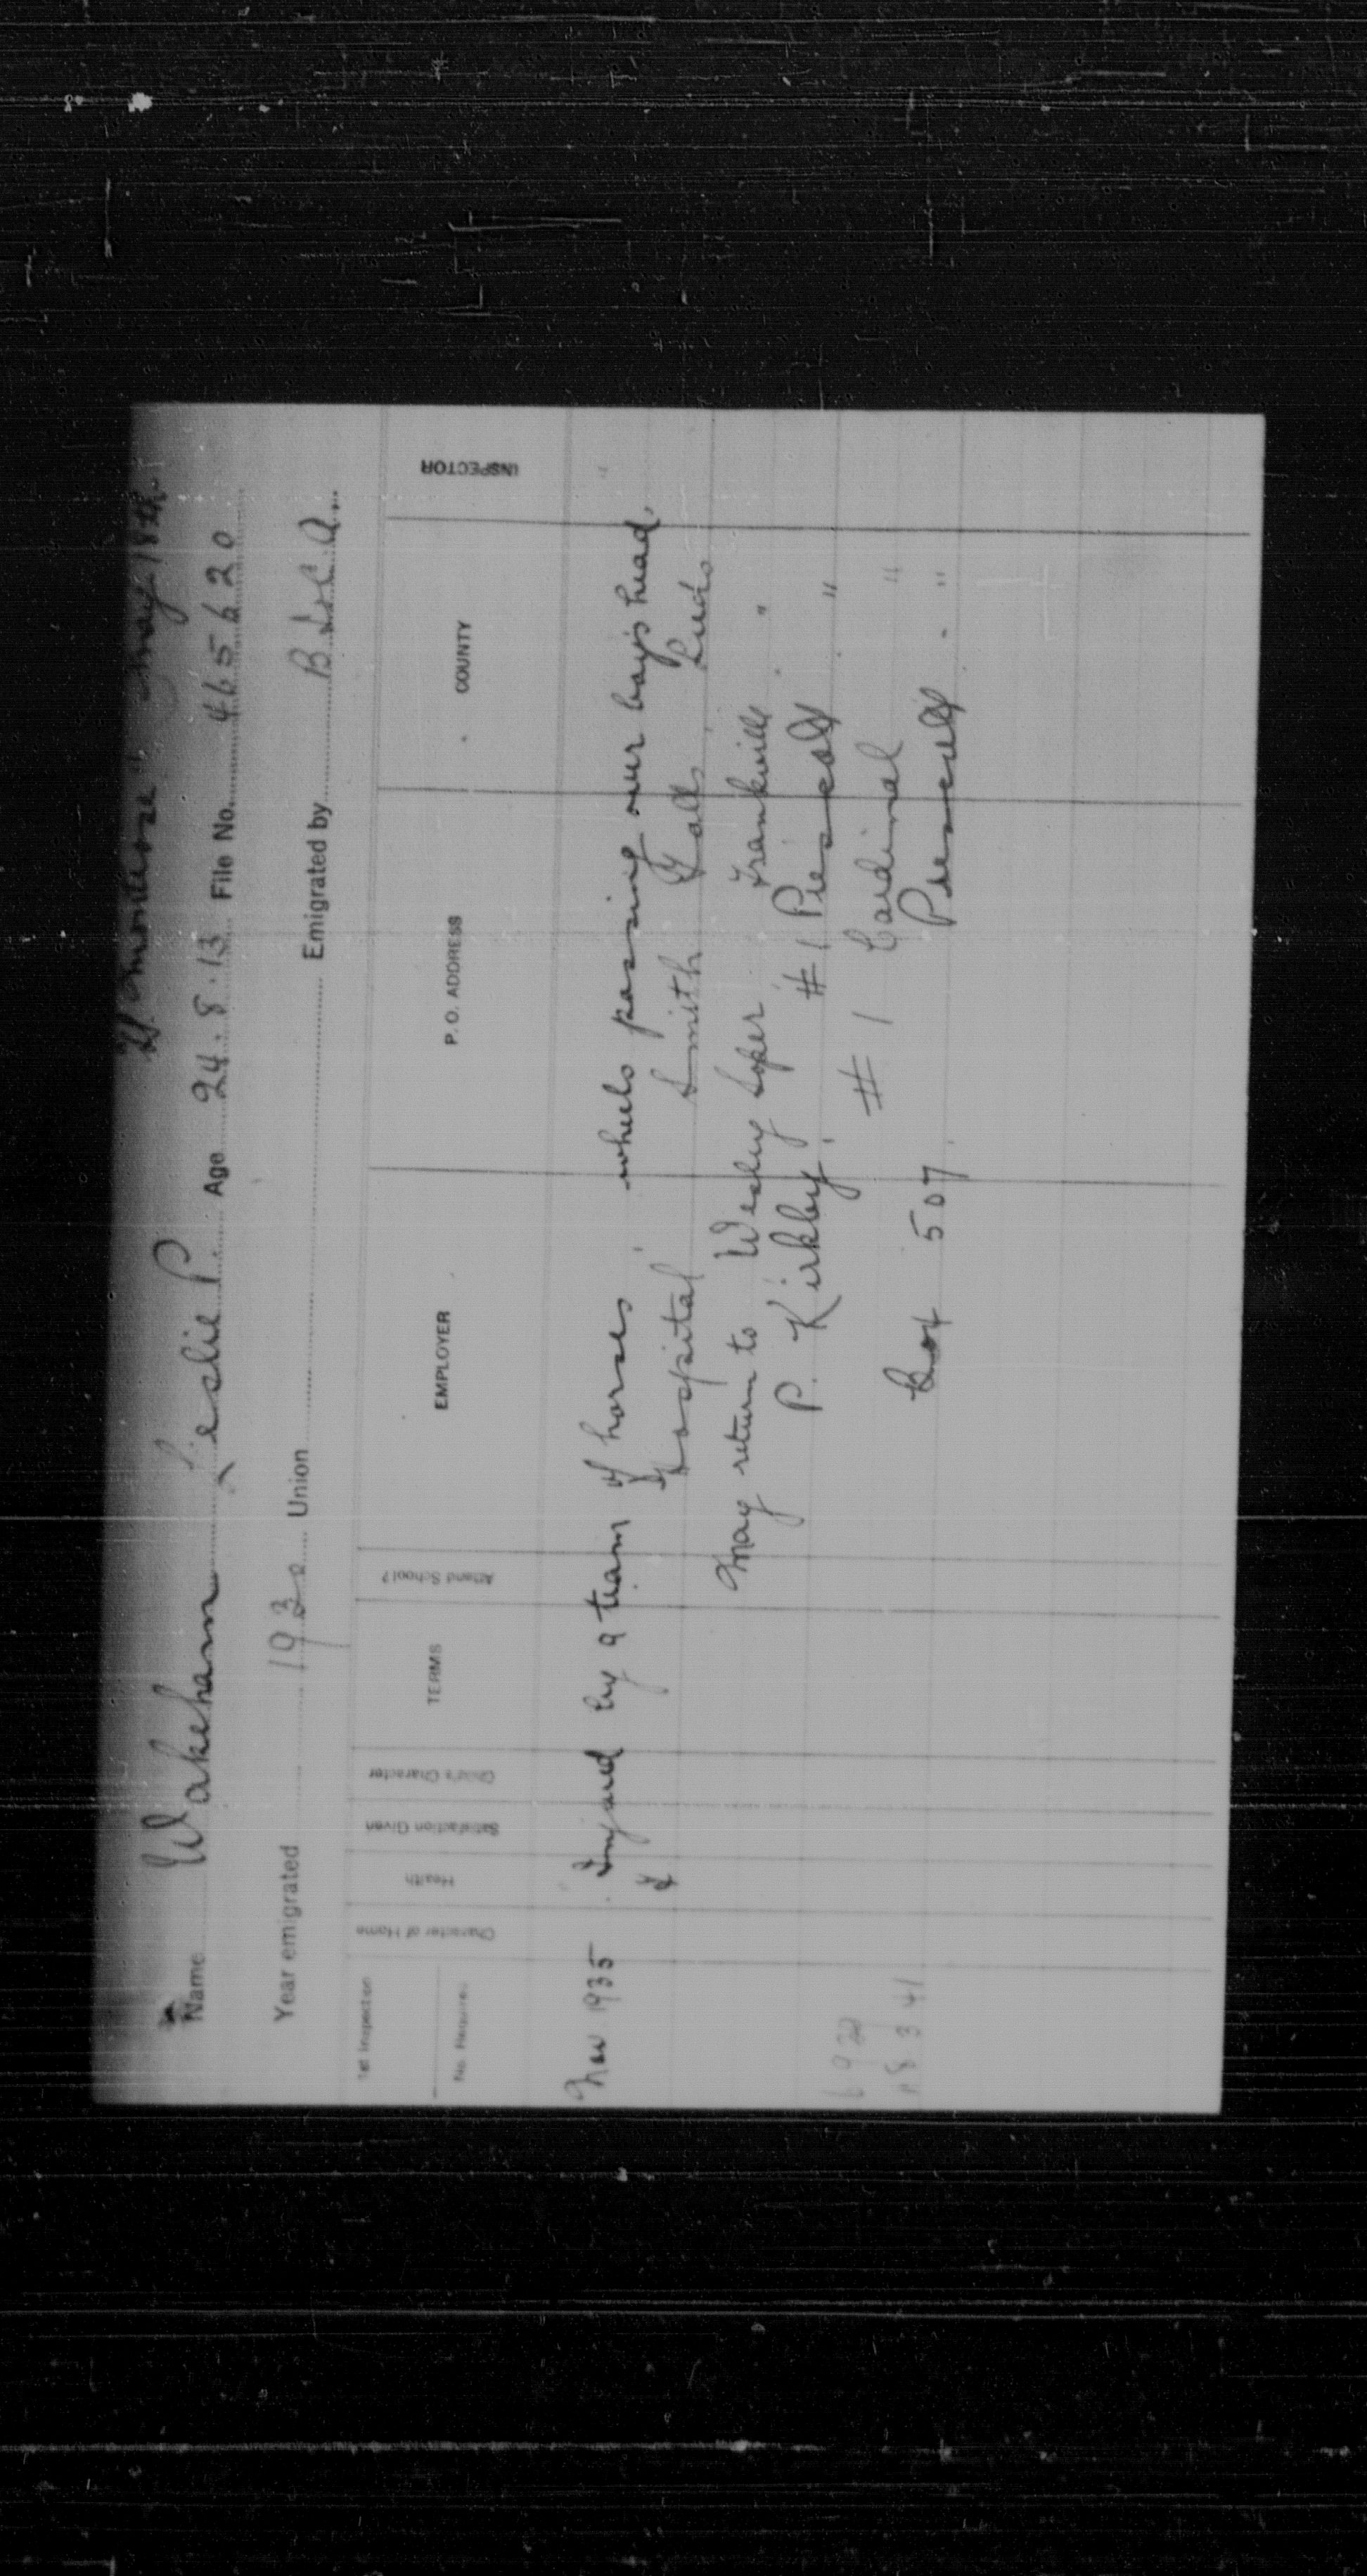 May 18th
Name Wakeham Leslie P. Age 24.8.13 File No. 465620
Year emigrated 1930 Union Emigrated by B.I.C.A.
1st Inspection
No. Required
Character of Home
Health
Satisfaction Given
Child's Character
TERMS
Attend School?
EMPLOYER
P. O. ADDRESS
COUNTY
INSPECTOR
Nov 1935 Injured by a team of horses, wheels passing over boy's head.
Hospital Smith Falls Leeds
May return to Wesley Soper Frankville "
P. Kirkby # 1 Prescott "
# 1 Cardinal "
Box 507 Prescott "